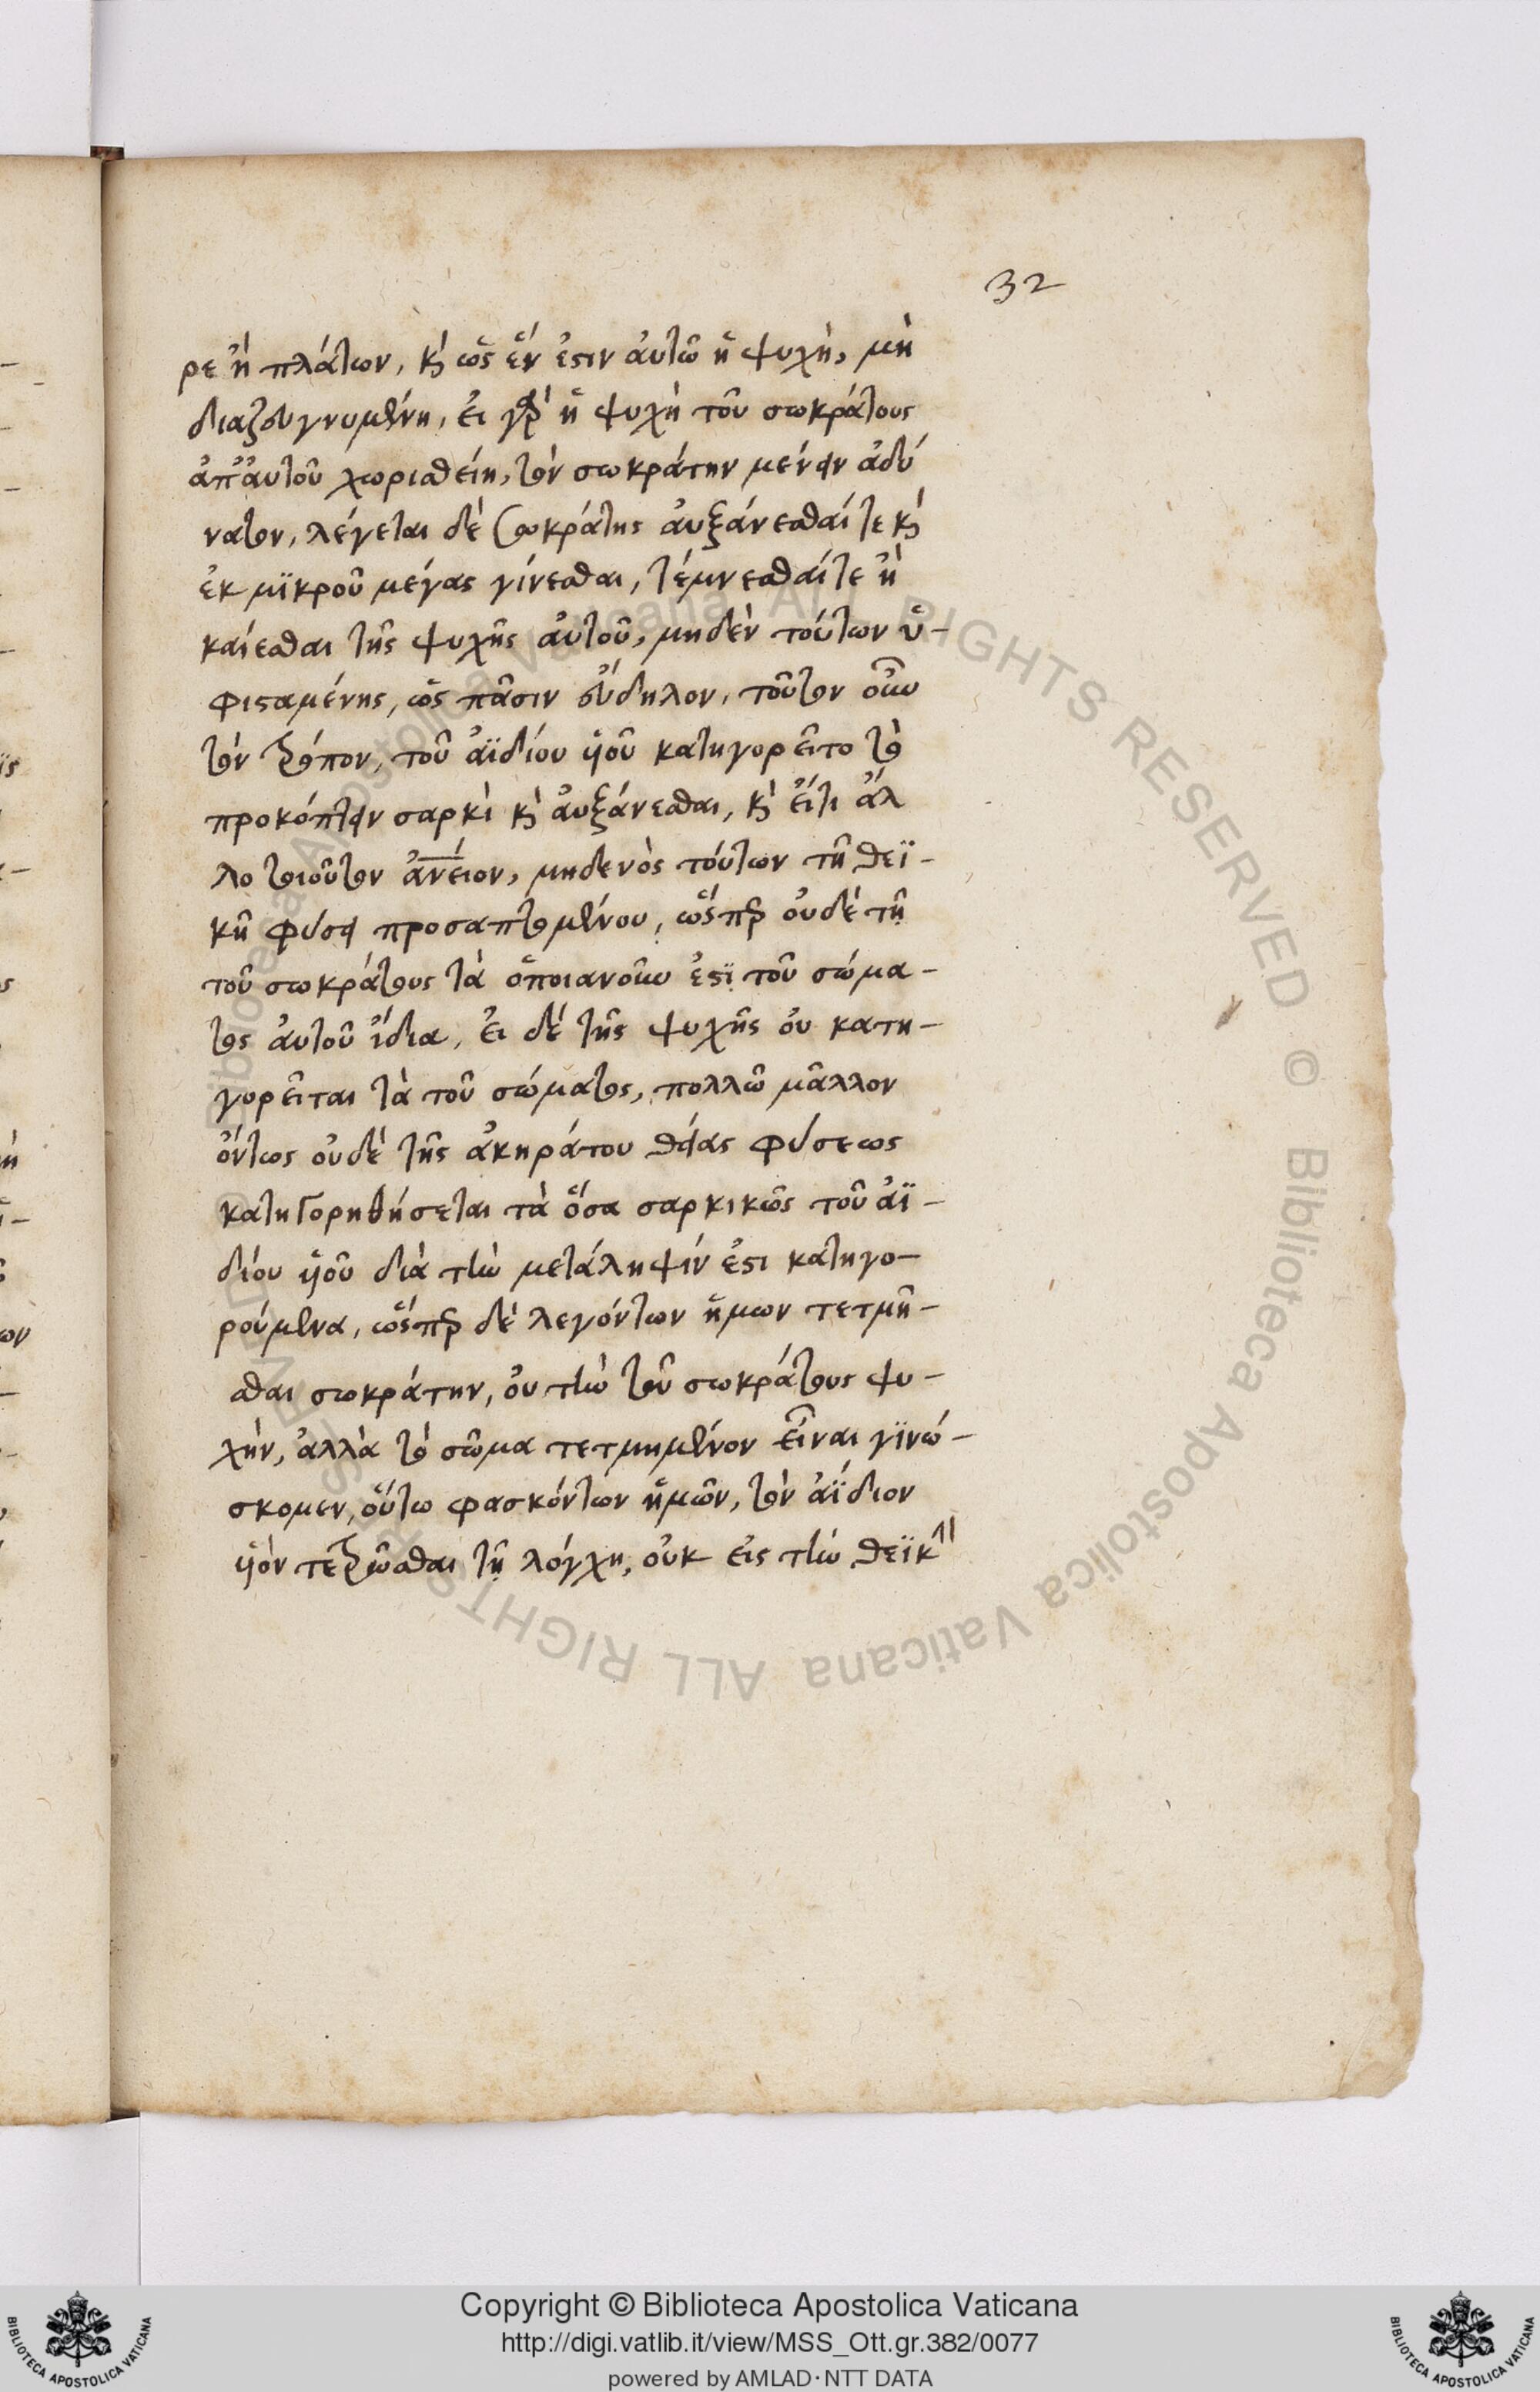 32
ρε ἢ πλάτων, κὶ ὡς ἕν ἐστιν ἀυτῶ ἡ ψυχὴ, μὴ
διαζευγνυμένη, ἐι γὰρ ἡ ψυχὴ τοῦ σωκράτους
ἀπ' ἀυτοῦ χωρισθείη, τὸν σωκράτην μένειν ἀδύ
νατον, λέγεται δὲ Σωκράτης ἀυξάνεσθαί τε κὶ
ἐκ μϊκροῦ μέγας γίνεσθαι, τέμνεσθαί τε ἢ
καίεσθαι τῆς ψυχῆς ἀυτοῦ, μηδὲν τούτων ὑ-
φισταμένης, ὡς πᾶσιν εὔδηλον, τοῦτον οὖν
τὸν τρόπον, τοῦ ἀϊδίου ὑοῦ κατηγορεῖτο τὸ
προκόπτειν σαρκὶ κὶ ἀυξάνεσθαι, κὶ εἴτι ἄλ
λο τοιοῦτον ἀνείον, μηδενὸς τούτων τῆ θεϊ-
κῆ φύσει προσαπτομένου, ὥσπερ ουδὲ τῆ
τοῦ σωκράτους τὰ ὁποιανοῦν ἐστὶ τοῦ σώμα-
τος ἀυτοῦ ἴδια, ἐι δὲ τῆς ψυχῆς ὀυ κατη-
γορεῖται τὰ τοῦ σώματος, πολλῶ μᾶλλον
ὄντως ουδὲ τῆς ἀκηράτου θείας φύσεως
κατηγορηθήσεται τὰ ὅσα σαρκικῶς τοῦ ἀϊ-
δίου ὑοῦ διὰ τὴν μετάληψίν ἐστι κατηγο-
ρούμενα, ὥσπερ δὲ λεγόντων ἡμων τετμῆ-
σθαι σωκράτην, ὀυ τὴν τοῦ σωκράτους ψυ-
χὴν, ἀλλὰ τὸ σῶμα τετμημένον εἶναι γϊνώ-
σκομεν, οὕτω φασκόντων ἡμῶν, τὸν ἀΐδιον
ὑὸν τετρῶσθαι τῆ λόγχη, οὐκ εἰς τὴν θεϊκὴν
Copyright © Biblioteca Apostolica Vaticana
http://digi.vatlib.it/view/MSS_Ott.gr.382/0077
powered by AMLAD·NTT DATA